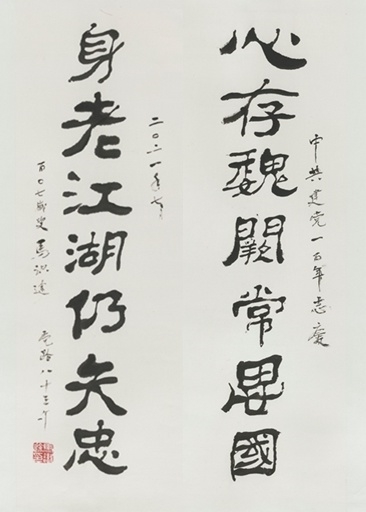 中共建党一百年志慶
心存魏闕常思國
二〇二一年七
身老江湖仍矢忠
百〇七歲叟馬識途 党龄八十三年